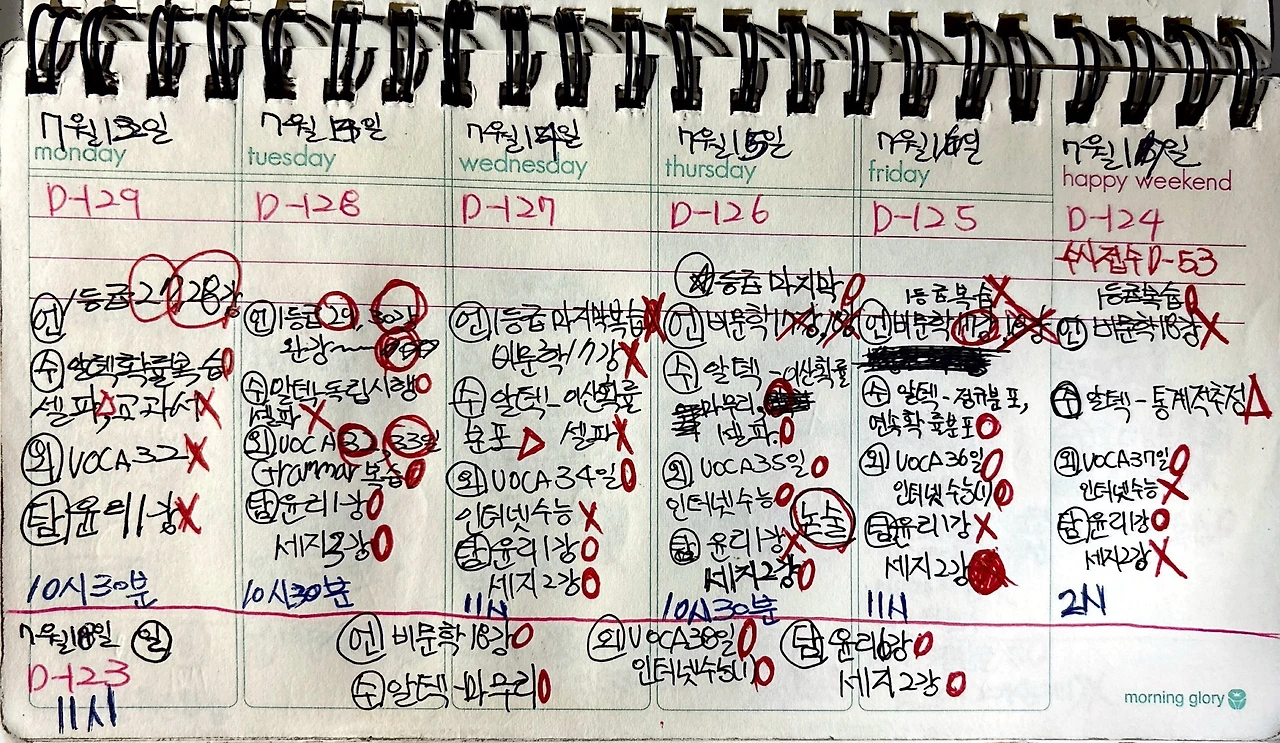 7월 12일
monday
D-129
언 1등급 27, 28강
수 알텍확률복습O
셀파△교과서X
외 VOCA32X
탐 윤리1강X
10시30분
7월 13일
tuesday
D-128
언 1등급 29, 30강
완강~
수 알텍독립시행O
셀파 X
외 VOCA32, 33일
Grammar복습O
탐 윤리1강O
세지3강O
10시30분
7월 14일
wednesday
D-127
언 1등급마지막복습X
비문학17강X
수 알텍-이산확률
분포△ 셀파X
외 VOCA34일O
인터넷수능X
탐 윤리1강O
세지2강O
11시
7월 15일
thursday
D-126
1등급 마지막O
언 비문학17강, 18강
수 알텍-이산확률
마무리
셀파O
외 VOCA35일O
인터넷수능O
논술
탐 윤리1강X
세지2강O
10시30분
7월 16일
friday
D-125
1등급복습X
언 비문학17강, 18강X
수 알텍-정규분포,
연속확률분포O
외 VOCA36일O
인터넷수능(1)O
탐 윤리1강X
세지2강
11시
7월 17일
happy weekend
D-124
수시접수D-53
1등급복습O
언 비문학18강X
수 알텍-통계적추정△
외 VOCA37일O
인터넷수능X
탐 윤리1강O
세지2강X
2시
7월18일 일
D-123
11시
언 비문학18강O
수 알텍-마무리O
외 VOCA38일O
인터넷수능(1)O
탐 윤리강O
세지2강O
morning glory